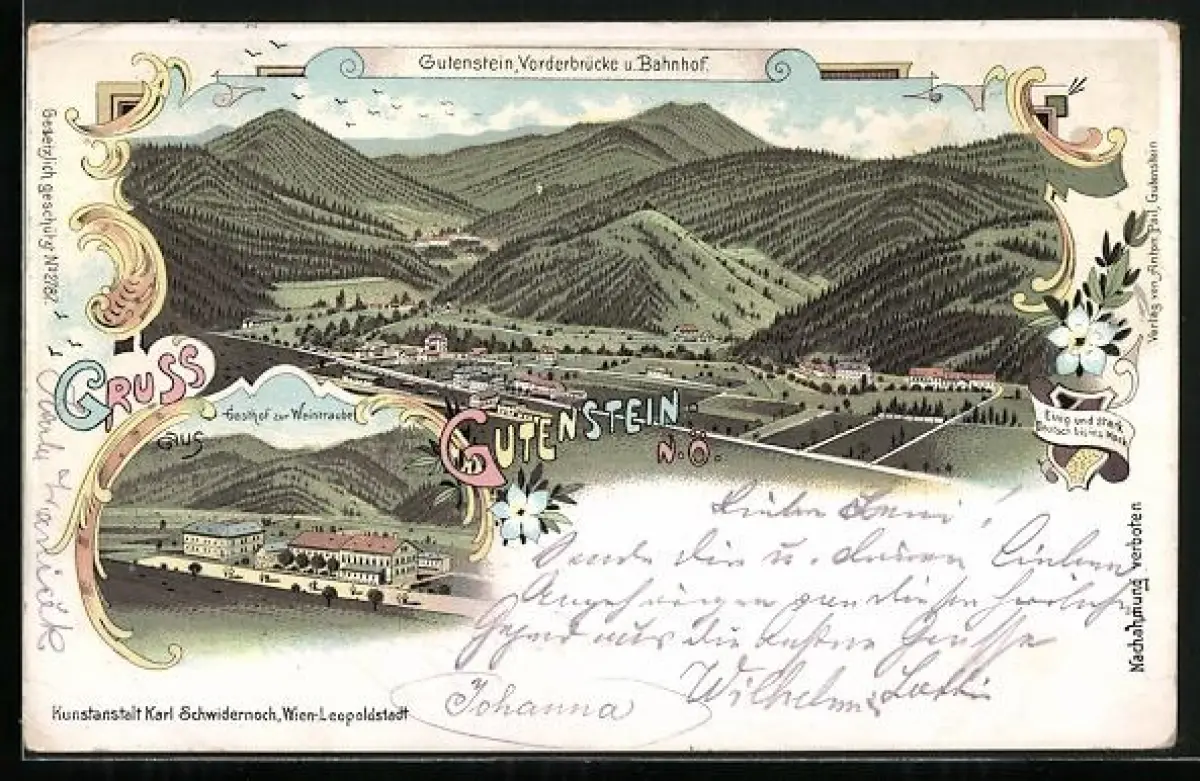 Gutenstein, Vorderbrücke u. Bahnhof.
Gesetzlich geschützt
Verlag von Anton Pail, Gutenstein
GRUSS
AUS
Gasthof zur Weintraube
GUTENSTEIN
N.Ö.
Einig und stark
Deutsch bis ins Mark
Nachahmung verboten
Sende dir u. deinen lieben
Angehörigen von dieser
Gegend aus die besten Grüsse
Wilhelm
Johanna
Kunstanstalt Karl Schwidernoch, Wien-Leopoldstadt